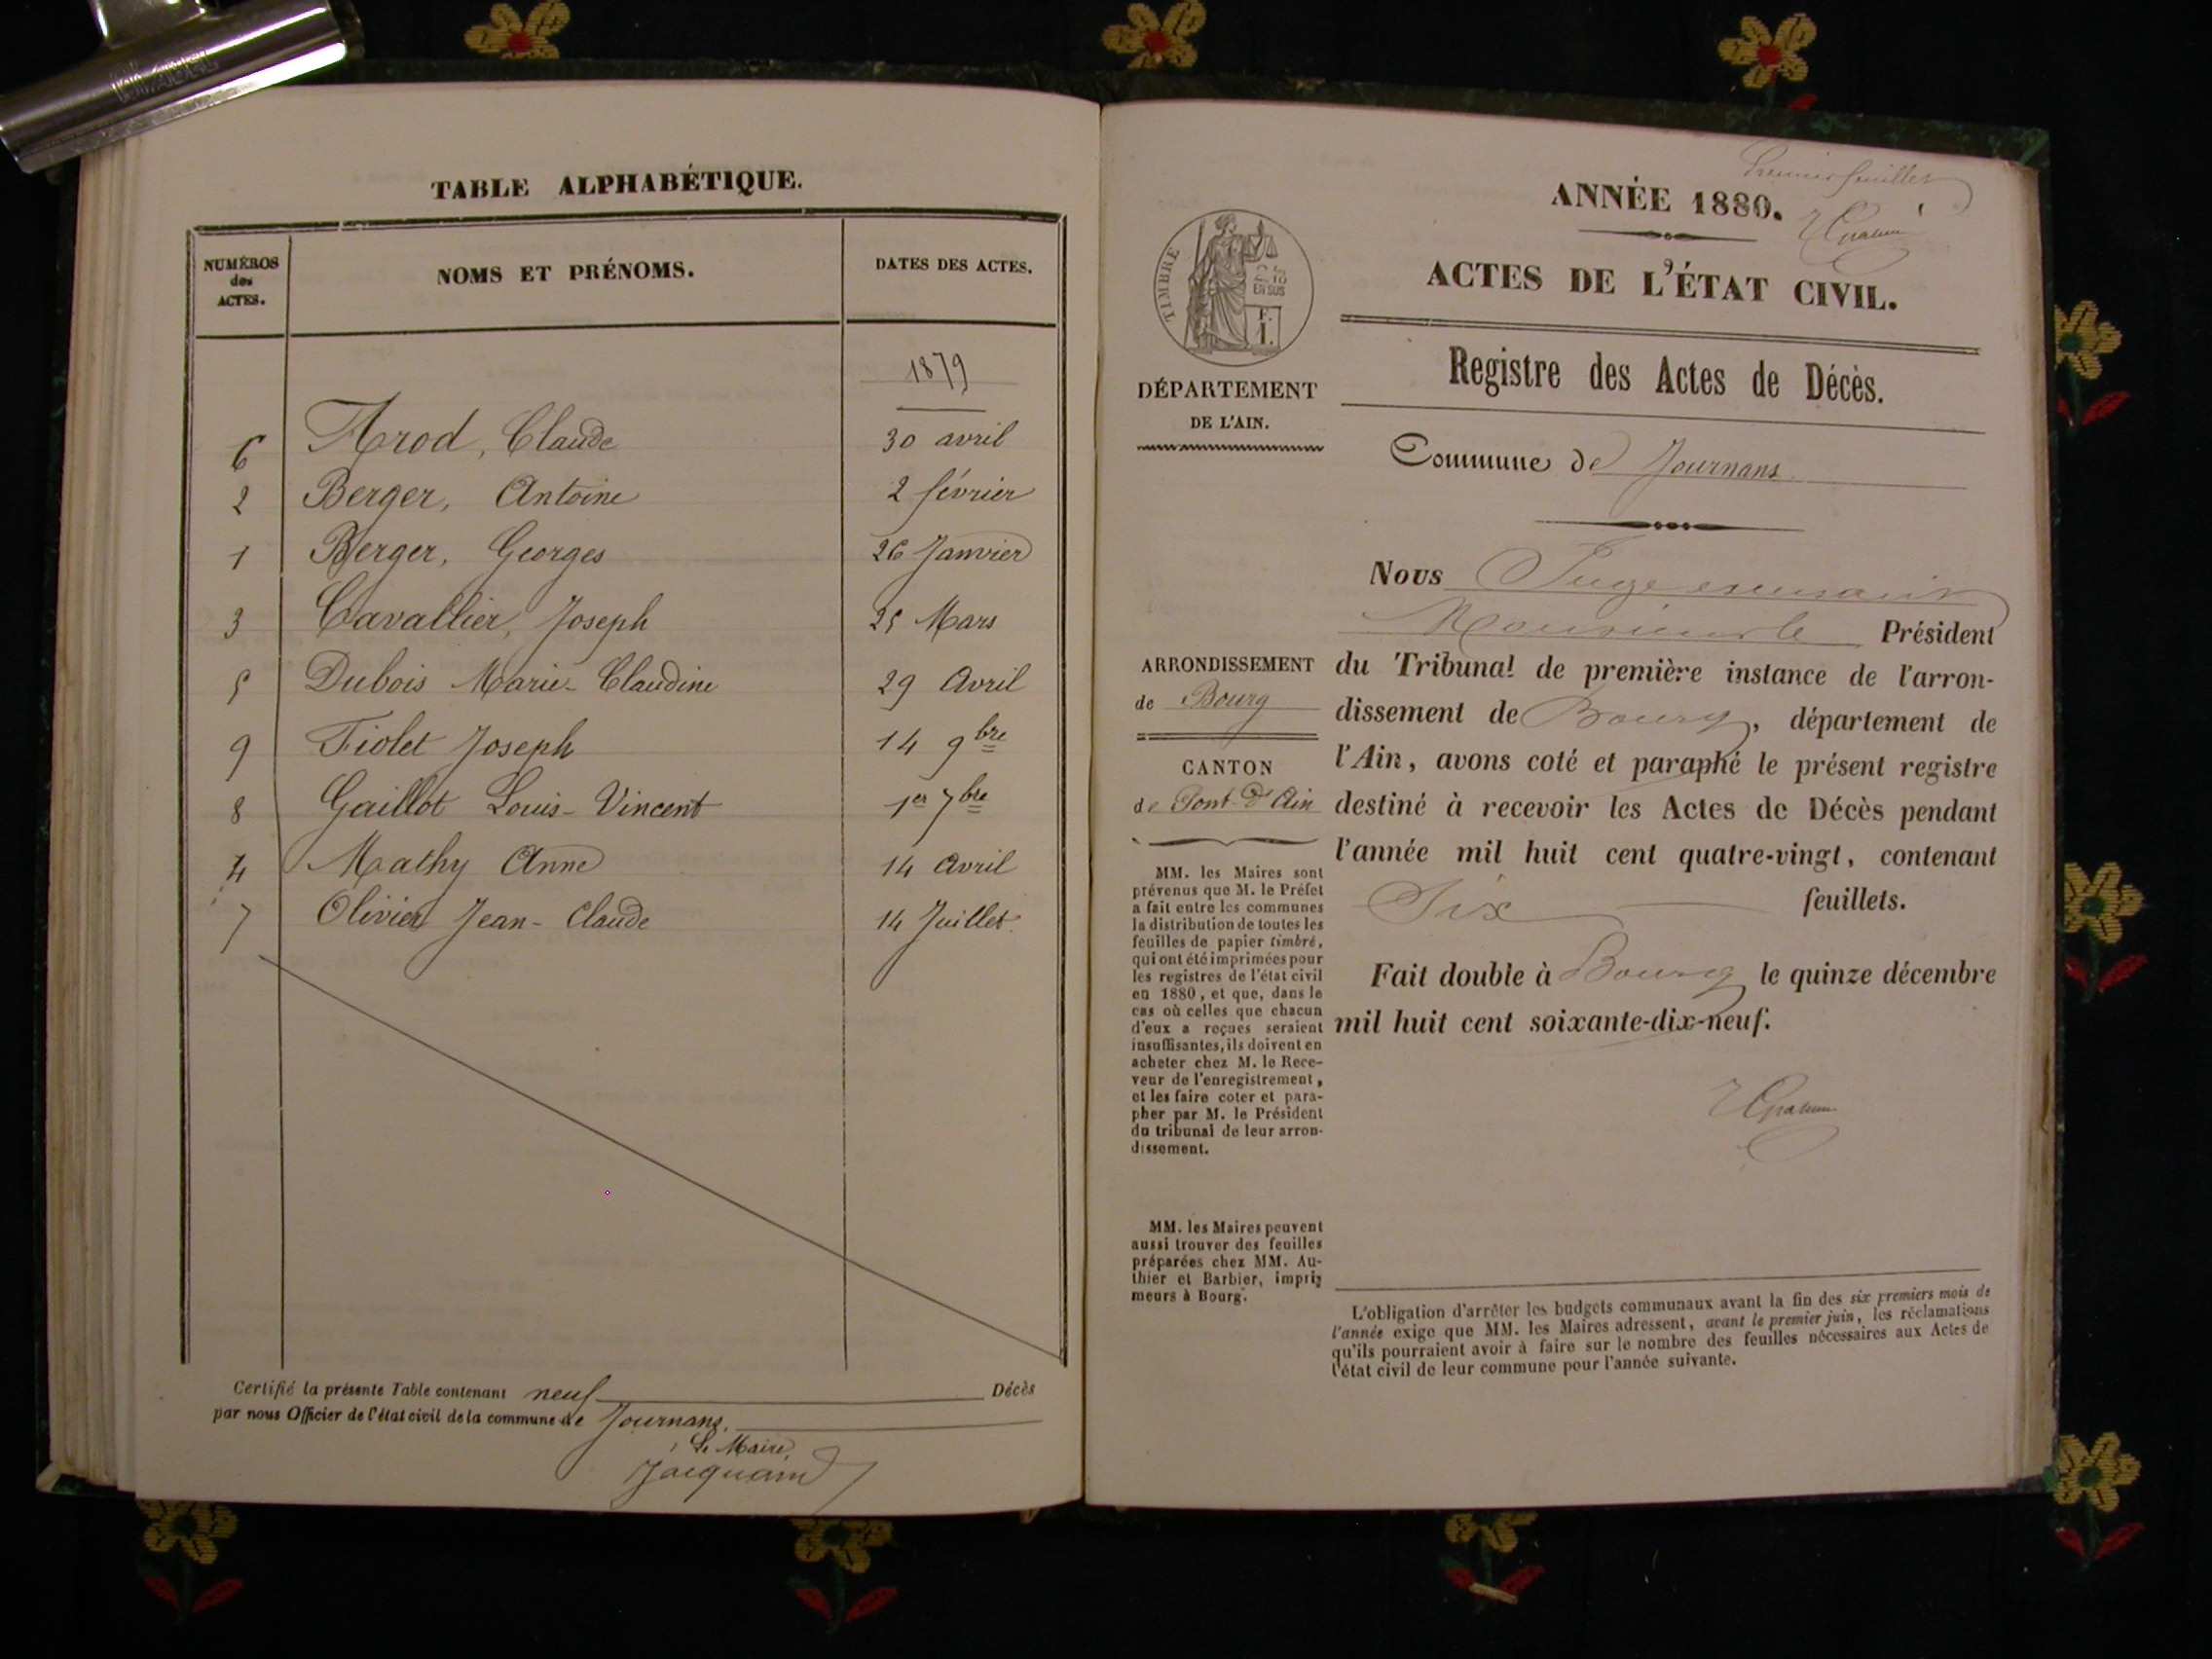 TABLE ALPHABÉTIQUE.
NUMÉROS des ACTES. NOMS ET PRÉNOMS. DATES DES ACTES.
1879
6 Arod, Claude 30 avril
2 Berger, Antoine 2 février
1 Berger, Georges 26 Janvier
3 Cavallier, Joseph 25 Mars
5 Dubois Marie-Claudine 29 Avril
9 Fiolet Joseph 14 9bre
8 Gaillot Louis-Vincent 1er 7bre
4 Mathy Anne 14 Avril
7 Olivier Jean-Claude 14 Juillet.
Certifié la présente Table contenant neuf Décès
par nous Officier de l'état civil de la commune de Journans.
Le Maire,
Jacquand
Premier feuillet
ANNÉE 1880.
ACTES DE L'ÉTAT CIVIL.
TIMBRE
EN SUS
F.
1.
Registre des Actes de Décès.
DÉPARTEMENT
DE L'AIN.
Commune de Journans
ARRONDISSEMENT
de Bourg
CANTON
de Pont-d'Ain
MM. les Maires sont
prévenus que M. le Préfet
a fait entre les communes
la distribution de toutes les
feuilles de papier timbré,
qui ont été imprimées pour
les registres de l'état civil
en 1880, et que, dans le
cas où celles que chacun
d'eux a reçues seraient
insuffisantes, ils doivent en
acheter chez M. le Rece-
veur de l'enregistrement,
et les faire coter et para-
pher par M. le Président
du tribunal de leur arron-
dissement.
MM. les Maires peuvent
aussi trouver des feuilles
préparées chez MM. Au-
thier et Barbier, impri-
meurs à Bourg.
Nous Juge
Monsieur le Président
du Tribunal de première instance de l'arron-
dissement de Bourg, département de
l'Ain, avons coté et paraphé le présent registre
destiné à recevoir les Actes de Décès pendant
l'année mil huit cent quatre-vingt, contenant
Six feuillets.
Fait double à Bourg le quinze décembre
mil huit cent soixante-dix-neuf.
L'obligation d'arrêter les budgets communaux avant la fin des six premiers mois de
l'année exige que MM. les Maires adressent, avant le premier juin, les réclamations
qu'ils pourraient avoir à faire sur le nombre des feuilles nécessaires aux Actes de
l'état civil de leur commune pour l'année suivante.